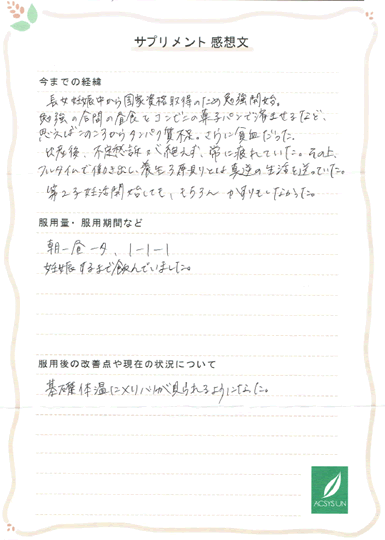 サプリメント 感想文
今までの経緯
長女妊娠中から国家資格取得のため勉強開始。
勉強の合間の昼食もコンビニの菓子パンで済ませるなど、
思えばこのころからタンパク質不足。さらに貧血だった。
出産後、不定愁訴が絶えず、常に疲れていた。その上、
フルタイムで働き出し、養生3原則とは真逆の生活を送っていた。
第2子妊活開始しても、もちろんかすりもしなかった。
服用量・服用期間など
朝-昼-夕、1-1-1
妊娠するまで飲んでいました。
服用後の改善点や現在の状況について
基礎体温にメリハリが見られるようになった。
ACSYS UN